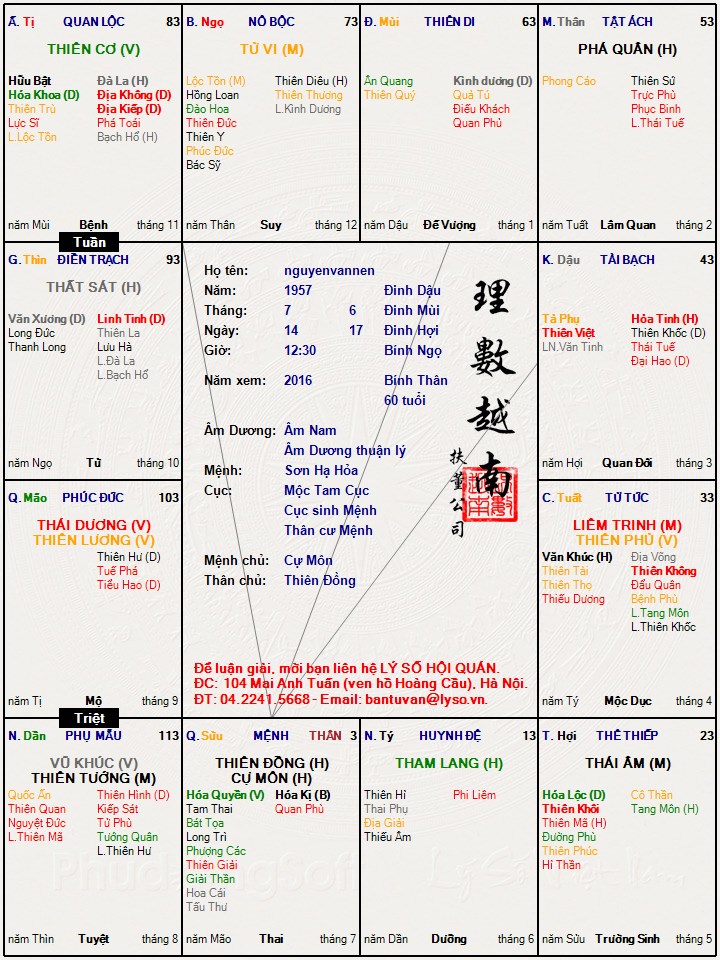 Ất. Tị QUAN LỘC 83
THIÊN CƠ (V)
Hữu Bật Đà La (H)
Hóa Khoa (D) Địa Không (D)
Thiên Trù Địa Kiếp (D)
Lực Sĩ Phá Toái
L.Lộc Tồn Bạch Hổ (H)
năm Mùi Bệnh tháng 11
B. Ngọ NÔ BỘC 73
TỬ VI (M)
Lộc Tồn (M) Thiên Diêu (H)
Hồng Loan Thiên Thương
Đào Hoa L.Kình Dương
Thiên Đức
Thiên Y
Phúc Đức
Bác Sỹ
năm Thân Suy tháng 12
Đ. Mùi THIÊN DI 63
Ân Quang Kình dương (D)
Thiên Quý Quả Tú
Điếu Khách
Quan Phủ
năm Dậu Đế Vượng tháng 1
M. Thân TẬT ÁCH 53
PHÁ QUÂN (H)
Phong Cáo Thiên Sứ
Trực Phù
Phục Binh
L.Thái Tuế
năm Tuất Lâm Quan tháng 2
Tuần
G. Thìn ĐIỀN TRẠCH 93
THẤT SÁT (H)
Văn Xương (D) Linh Tinh (D)
Long Đức Thiên La
Thanh Long Lưu Hà
L.Đà La
L.Bạch Hổ
năm Ngọ Tử tháng 10
Họ tên: nguyenvannen
Năm: 1957 Đinh Dậu
Tháng: 7 6 Đinh Mùi
Ngày: 14 17 Đinh Hợi
Giờ: 12:30 Bính Ngọ
Năm xem: 2016 Bính Thân
60 tuổi
Âm Dương: Âm Nam
Âm Dương thuận lý
Mệnh: Sơn Hạ Hỏa
Cục: Mộc Tam Cục
Cục sinh Mệnh
Thân cư Mệnh
Mệnh chủ: Cự Môn
Thân chủ: Thiên Đồng
理數越南
扶董公司
Để luận giải, mời bạn liên hệ LÝ SỐ HỘI QUÁN.
ĐC: 104 Mai Anh Tuấn (ven hồ Hoàng Cầu), Hà Nội.
ĐT: 04.2241.5668 - Email: bantuvan@lyso.vn.
K. Dậu TÀI BẠCH 43
Tả Phụ Hỏa Tinh (H)
Thiên Việt Thiên Khốc (D)
LN.Văn Tinh Thái Tuế
Đại Hao (D)
năm Hợi Quan Đới tháng 3
Q. Mão PHÚC ĐỨC 103
THÁI DƯƠNG (V)
THIÊN LƯƠNG (V)
Thiên Hư (D)
Tuế Phá
Tiểu Hao (D)
năm Tị Mộ tháng 9
C. Tuất TỬ TỨC 33
LIÊM TRINH (M)
THIÊN PHỦ (V)
Văn Khúc (H) Địa Võng
Thiên Tài Thiên Không
Thiên Thọ Đẩu Quân
Thiếu Dương Bệnh Phù
L.Tang Môn
L.Thiên Khốc
năm Tý Mộc Dục tháng 4
Triệt
N. Dần PHỤ MẪU 113
VŨ KHÚC (V)
THIÊN TƯỚNG (M)
Quốc Ấn Thiên Hình (D)
Thiên Quan Kiếp Sát
Nguyệt Đức Tử Phù
L.Thiên Mã Tướng Quân
L.Thiên Hư
năm Thìn Tuyệt tháng 8
Q. Sửu MỆNH THÂN 3
THIÊN ĐỒNG (H)
CỰ MÔN (H)
Hóa Quyền (V) Hóa Kị (B)
Tam Thai Quan Phù
Bát Tọa
Long Trì
Phượng Các
Thiên Giải
Giải Thần
Hoa Cái
Tấu Thư
năm Mão Thai tháng 7
N. Tý HUYNH ĐỆ 13
THAM LANG (H)
Thiên Hỉ Phi Liêm
Thai Phụ
Địa Giải
Thiếu Âm
năm Dần Dưỡng tháng 6
T. Hợi THÊ THIẾP 23
THÁI ÂM (M)
Hóa Lộc (D) Cô Thần
Thiên Khôi Tang Môn (H)
Thiên Mã (H)
Đường Phù
Thiên Phúc
Hỉ Thần
năm Sửu Trường Sinh tháng 5